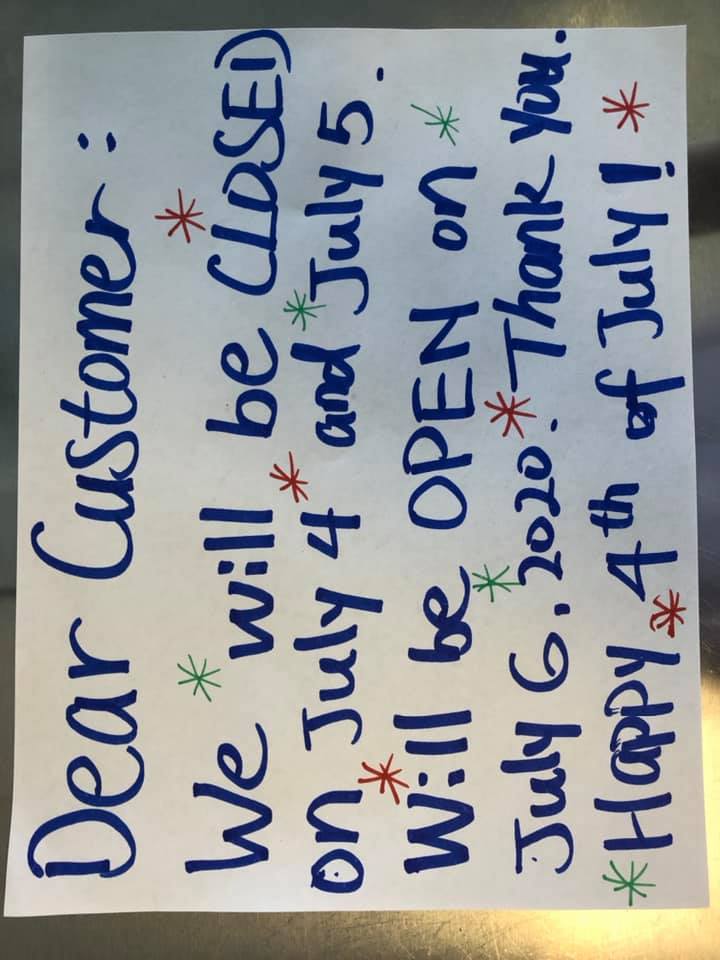 Dear Customer:
We will be CLOSED
on July 4 and July 5.
Will be OPEN on
July 6, 2020. Thank you.
Happy 4th of July!